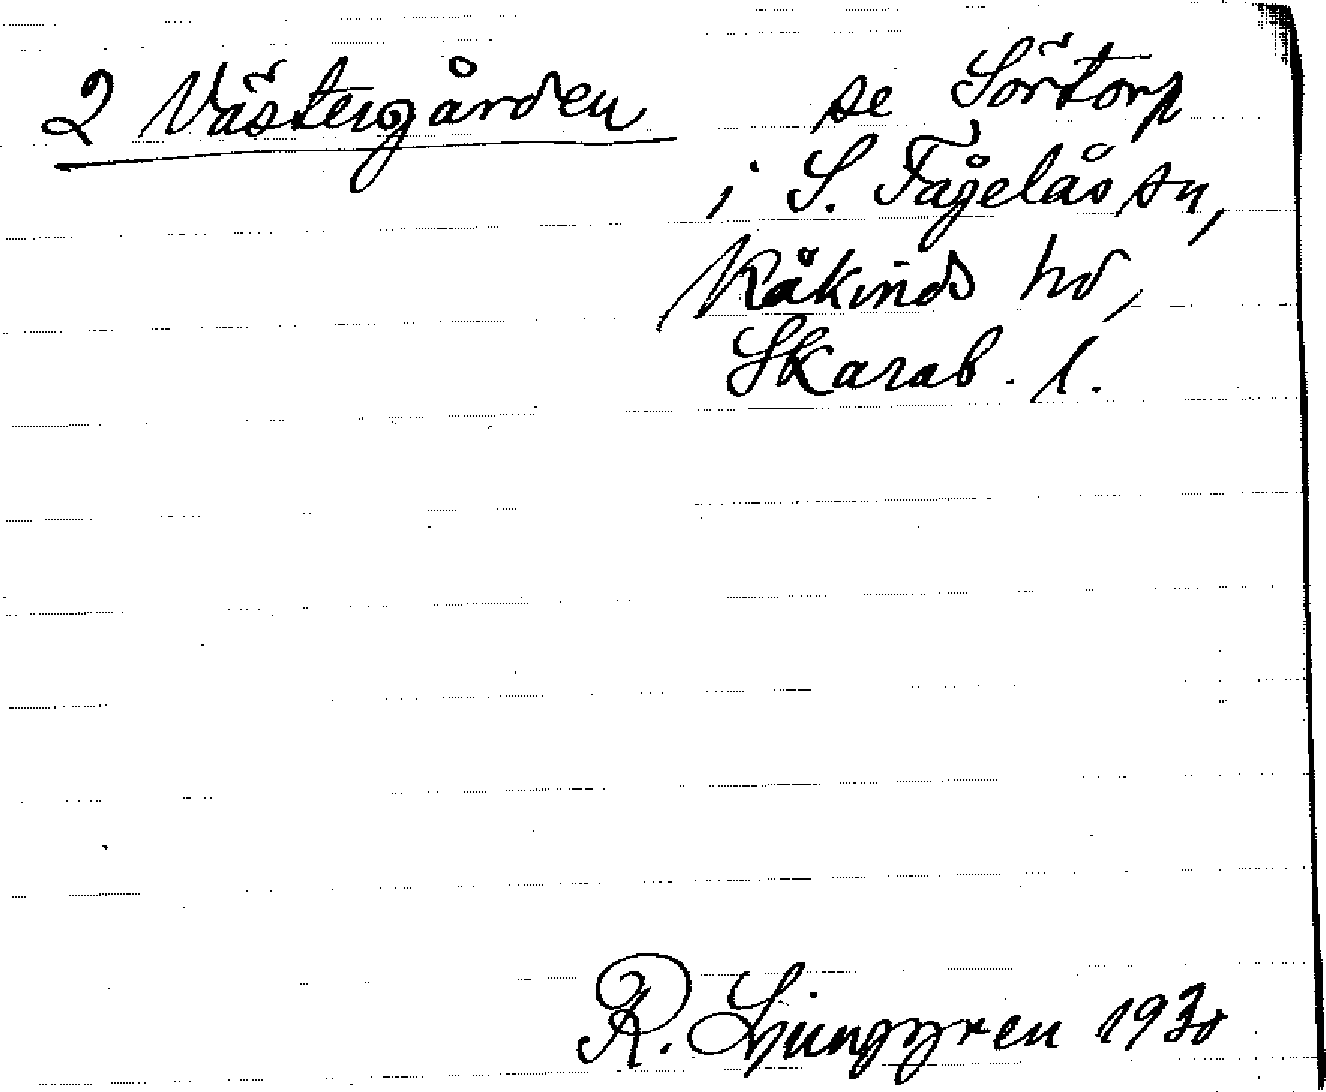 2 Västergården se Sörtorp
i S. Fågelås sn,
Kåkinds hd,
Skarab. l.
R. Ljunggren 1930